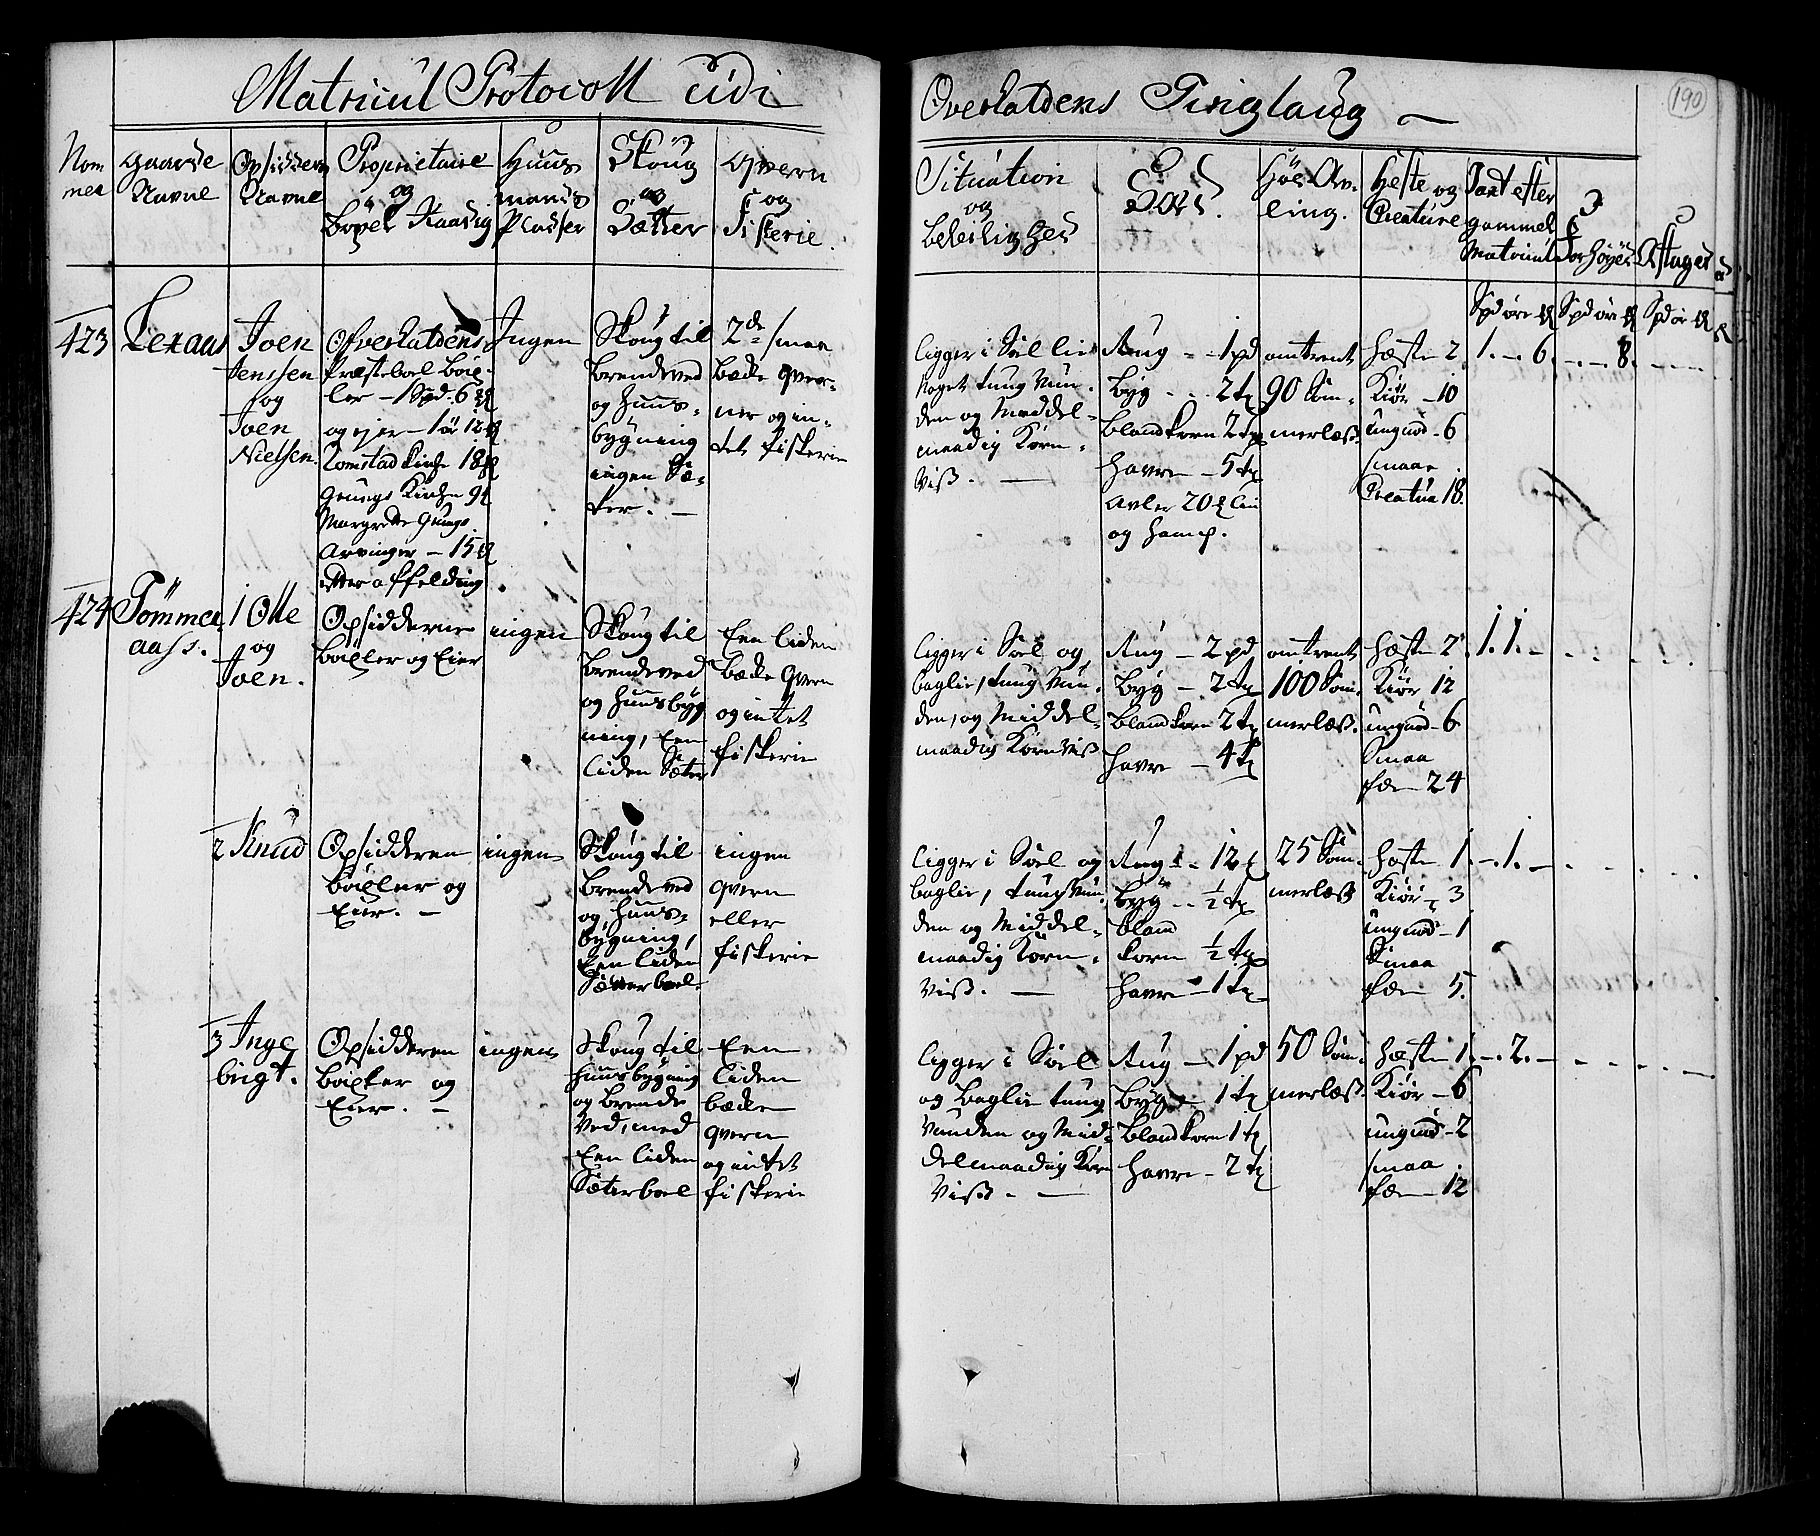 Matricul Protocoll udi
Overhaldens Tinglaug
190
Nom
mer
Gaarde
Navne
Opsiddere
Navne
Proprietaire
og
Böxel Raadig
Huus
mands
Pladser
Skoug
og
Sætter
Qvern
og
Fiskerie.
Situation
og
beleilighed
Sæd.
Höe Av-
ling.
Heste og
Creature
Taxt efter
gammel
Matricul
For höyes
Aftages
Spd öre ℔
Spd öre ℔
Spd ör ℔
423
aas
Joen
Jenssen
og
Joen
Nielsen.
Overhaldens
Præstebol Böx-
ler - 1 Spd. 6 ℔
og ejer - 1 ör 12 ℔
Kirche 18 ℔
Kirche 9 ℔
Margrette
Arvinger - 15 ℔
Ingen
Skoug til
brendeved
og huus-
bygning
ingen Sæ-
ter. -
2de smaa
bække qver-
ner og in-
tet fiskerie
ligger i Soel lie
Noget tung Vun-
den og Meddel-
maadig Korn-
Viss. -
Rug - 1 pd
Byg - 2 tr
Blandkorn 2 tr
Havre - 5 tr
Avler 20 ℔ Liin
og hamp.
omtrent
90 Som-
merlæss.
Heste 2
Kiör - 10
ungnöd - 6
smaae
Creatur 18.
1. - 6.
- 8.
424
Tömmer
aass.
1 Olle
og
Joen.
Opsidderne
böxler og Eier
ingen
Skoug til
brendeved
og huusbyg
ning, Een
liden Sæter
Een liden
bække qvern
og intet
fiskerie
ligger i Soel og
baglie, tung Vun-
den, og Middel-
maadig Kornviss
Rug - 2 pd
Byg - 2 tr
Blandkorn 2 tr
Havre - 4 tr
omtrent
100 Som-
merlæss.
Heste 2
Kiör 12
ungnöd - 6
Smaa
fæe - 24
1. 1. -
2 Knud
Opsidderen
böxler og
Eier. -
ingen
Skoug til
brendeved
og huus-
bygning,
Een liden
Sætterboel
ingen
qvern
eller
fiskerie
ligger i Soel og
baglie, tung Vun-
den og Middel-
maadig Korn-
Viss. -
Rug - 12
Byg - ½ tr
Bland
korn ½ tr
Havre - 1 tr
25 Som-
merlæss
Heste 1
Kiör - 3
ungnöd - 1
Smaa
fæe 5.
- 1. -
3 Inge
brigt.
Opsidderen
böxler og
Eier. -
ingen
Skoug til
huusbygning
og Brende
Ved, med
Een liden
Sæterboel
Een
liden
bække
qvern
og intet
fiskerie
ligger i Soel
og Baglie tung
Vunden og Mid-
delmaadig Korn
Viss. -
Rug - 1 pd
Byg - 1 tr
Blandkorn 1 tr
Havre - 2 tr
50 Som-
merlæss.
Heste 1
Kiör - 6
ungnöd - 2
smaa
fæe - 12
- 2. -